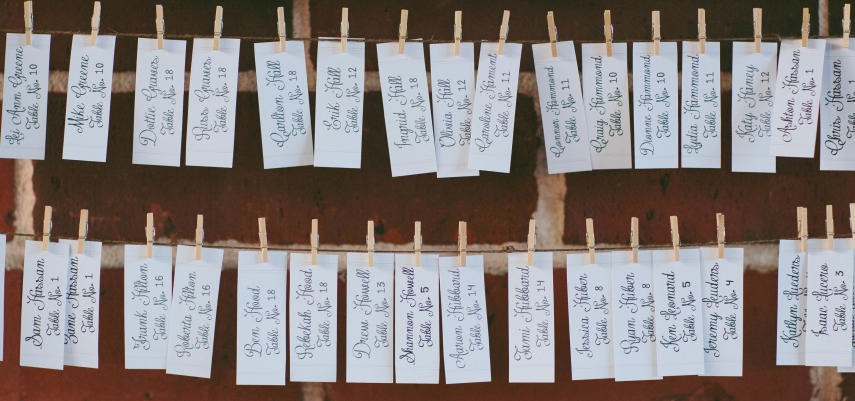 Le Ann Greene
Table No. 10
Mike Greene
Table No. 10
Dottie Graves
Table No. 18
Russ Graves
Table No. 18
Carlton Hall
Table No. 18
Erik Hall
Table No. 12
Ingrid Hall
Table No. 18
Olivia Hall
Table No. 12
Caroline Hament
Table No. 11
Connor Hammond
Table No. 11
Craig Hammond
Table No. 10
Dionne Hammond
Table No. 10
Lydia Hammond
Table No. 11
Katy Haney
Table No. 12
Ashton Hassan
Table No. 1
Chris Hassan
Table No. 1
Sam Hassan
Table No. 1
Zane Hassan
Table No. 1
Frank Hilton
Table No. 16
Roberta Hilton
Table No. 16
Ben Hood
Table No. 18
Rebekah Hood
Table No. 18
Drew Howell
Table No. 13
Shannon Howell
Table No. 5
Aaron Hubbard
Table No. 14
Tami Hubbard
Table No. 14
Jessica Huber
Table No. 8
Ryan Huber
Table No. 8
Ken Leonard
Table No. 5
Jeremy Lueders
Table No. 4
Katlyn Lueders
Table No.
Isaac Lucero
Table No. 3